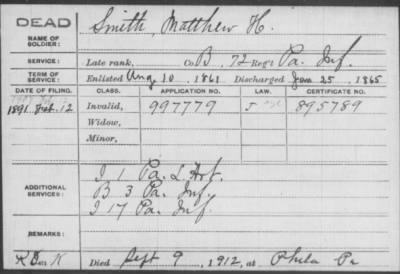 DEAD
Smith, Matthew H.
NAME OF SOLDIER:
SERVICE: Late rank, Co. B, 72 Reg't Pa. Inf.
TERM OF SERVICE: Enlisted Aug 10, 1861 Discharged Jan 25, 1865
DATE OF FILING. CLASS. APPLICATION NO. LAW. CERTIFICATE NO.
1891 Feb. 12 Invalid, 997779 895789
Widow,
Minor,
ADDITIONAL SERVICES:
I 1 Pa. L. Art.
B 3 Pa. Inf.
I 17 Pa. Inf.
REMARKS:
Died Sept 9, 1912, at Phila Pa